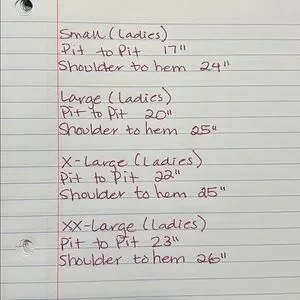 Small (Ladies)
Pit to Pit 17"
Shoulder to hem 24"
Large (Ladies)
Pit to Pit 20"
Shoulder to hem 25"
X-Large (Ladies)
Pit to Pit 22"
Shoulder to hem 25"
XX-Large (Ladies)
Pit to Pit 23"
Shoulder to hem 26"